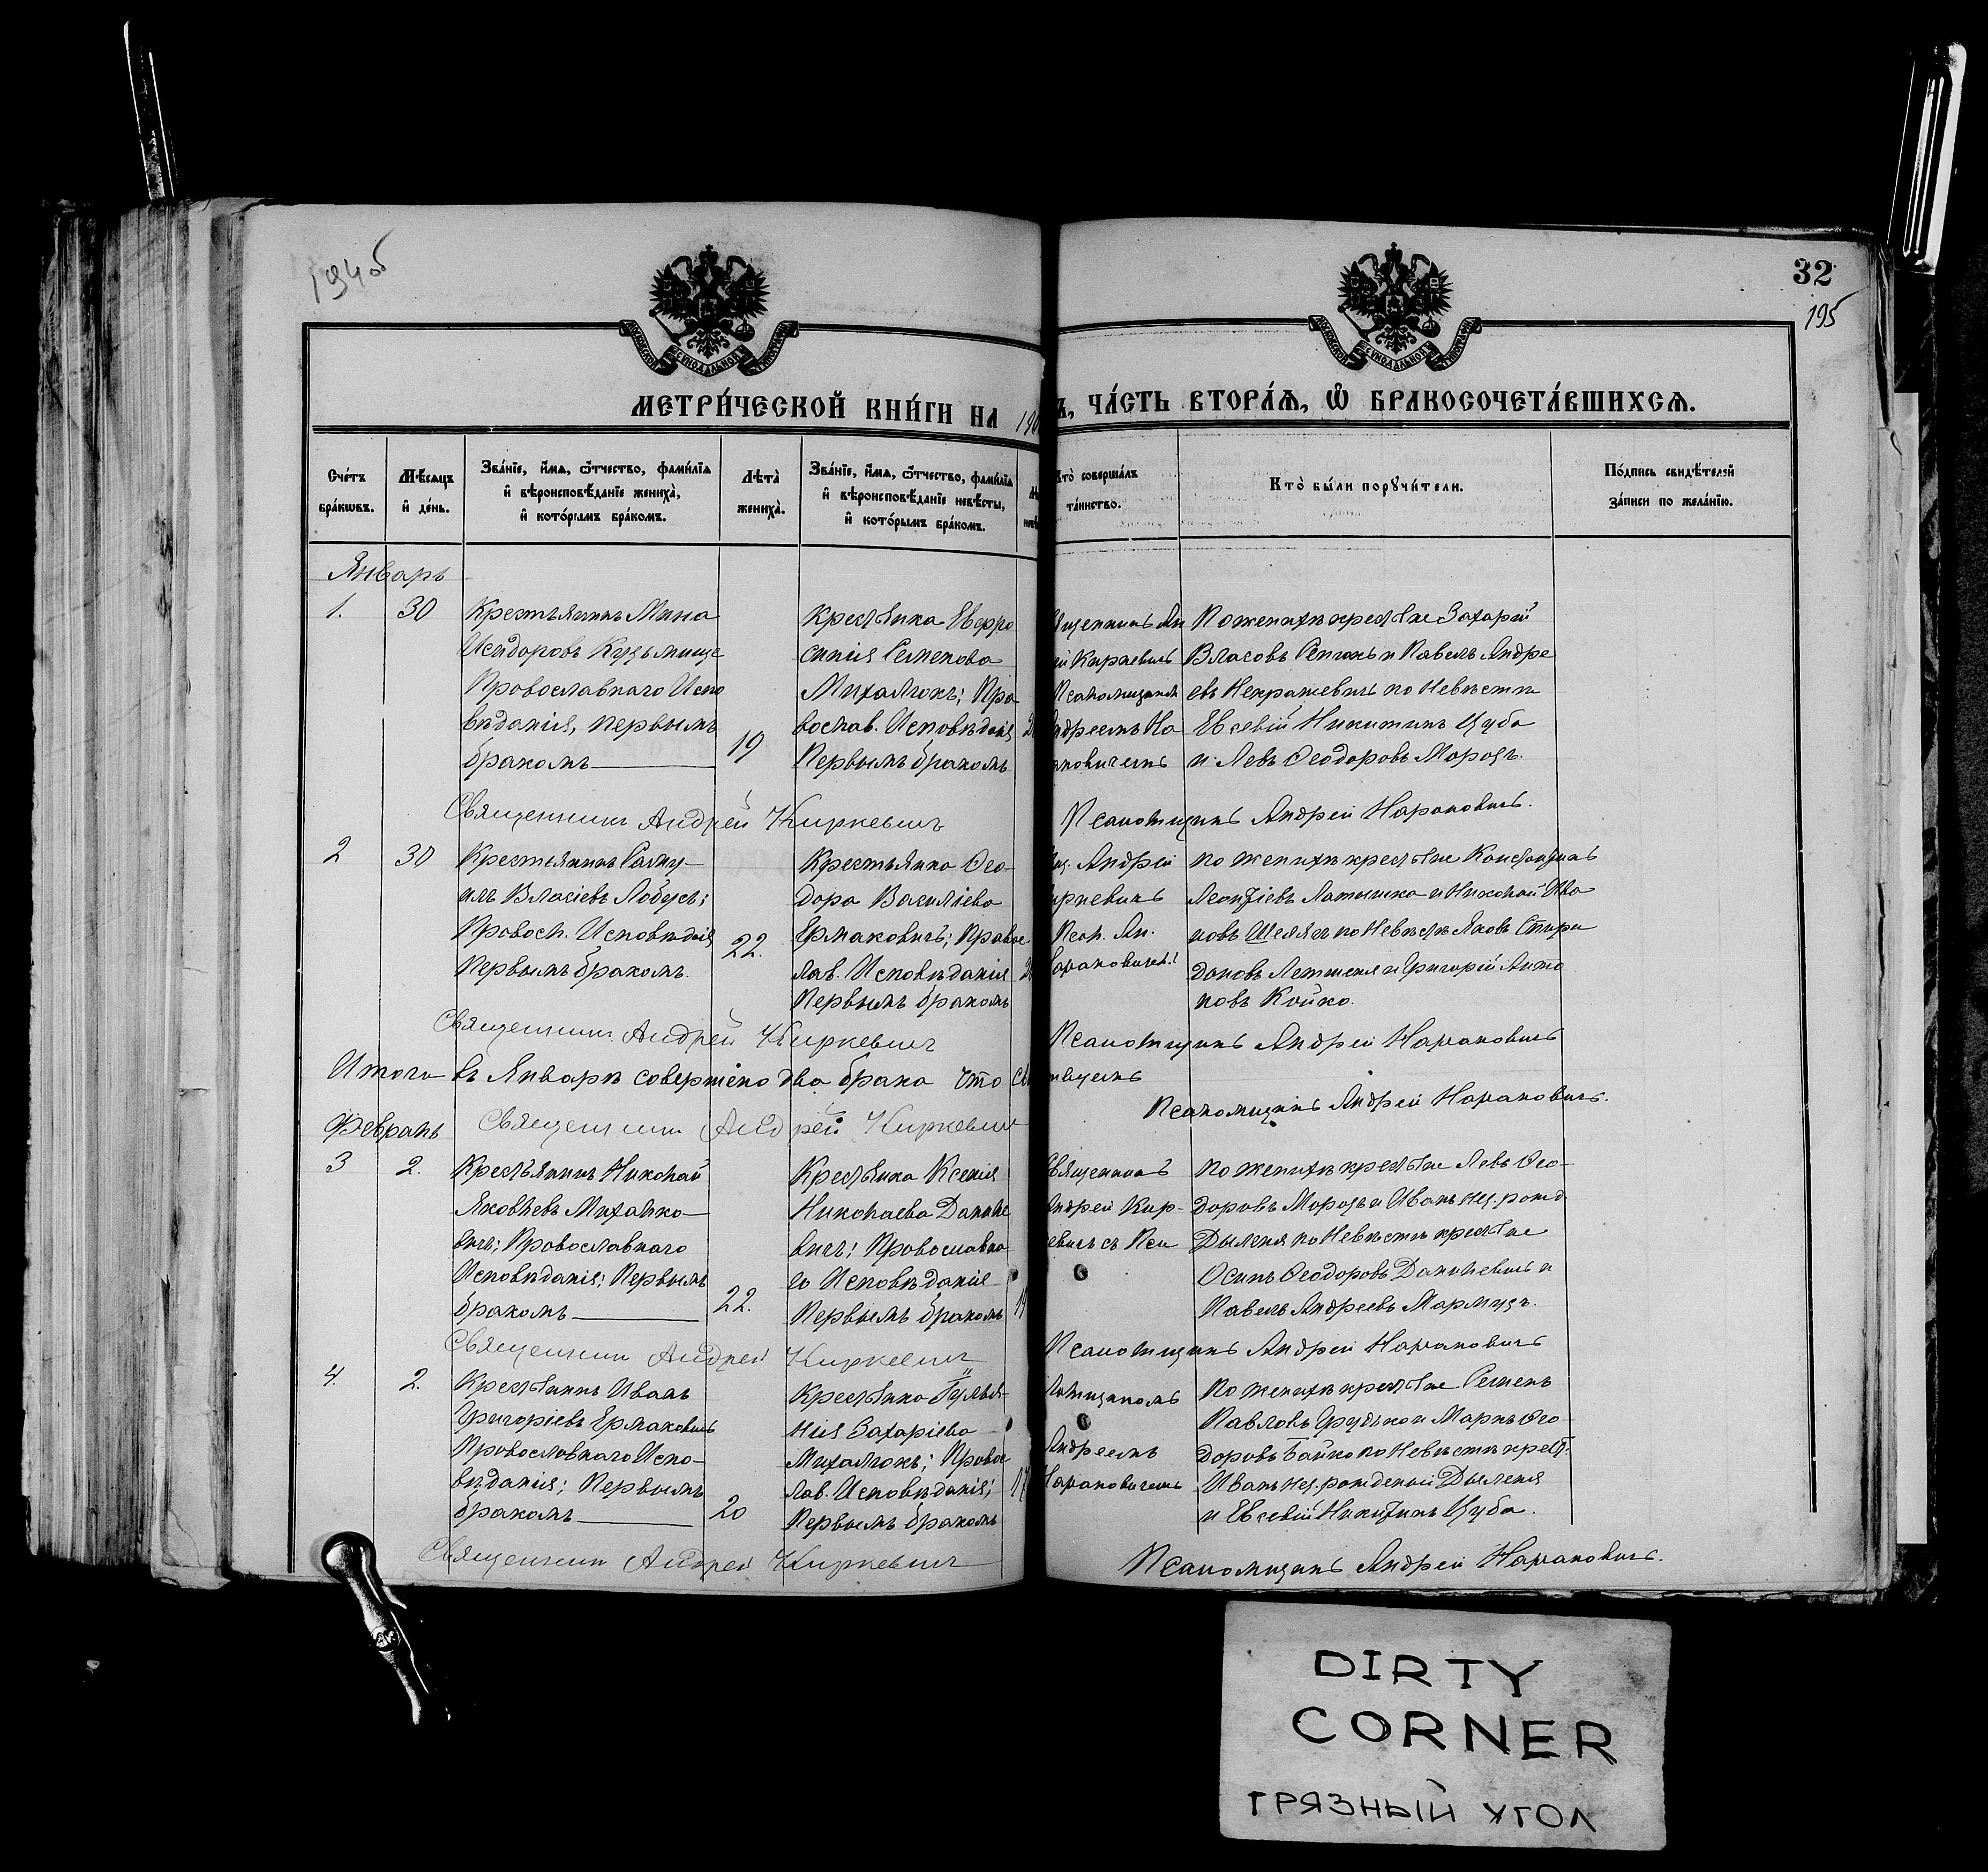 194об
32
195
МОСКОВСКОЙ СѴНОДАЛЬНОЙ ТИПОГРАФІИ
МОСКОВСКОЙ СѴНОДАЛЬНОЙ ТИПОГРАФІИ
МЕТРИ́ЧЕСКОЙ КНИ́ГИ НА 190
Ъ, ЧА́СТЬ ВТОРА́Ѧ, Ѽ БРАКОСОЧЕТА́ВШИХСѦ.
Сче́тъ бра́кѡвъ.
Мѣ́сѧцъ и҆ де́нь.
Зва́нїе, и҆́мѧ, ѻ҆́тчество, фами́лїѧ и҆ вѣроисповѣ́данїе жениха̀, и҆ кото́рымъ бра́комъ.
Лѣта̀ жениха̀.
Зва́нїе, и҆́мѧ, ѻ҆́тчество, фами́лїѧ и҆ вѣроисповѣ́данїе невѣ́сты, и҆ кото́рымъ бра́комъ.
Кто̀ соверша́лъ та́инство.
Кто̀ бы́ли порꙋчи́тели.
По́дпись свидѣ́телей за́писи по жела́нїю.
Январь
1.
30
Крестьянинъ Мина
Исидоровъ Кузьмище
Православнаго Испо
вѣданія, первымъ
бракомъ
19
Крестьянка Евфро
синія Семенова
Михалюкъ; Пра
вослав. Исповѣданія
Первымъ бракомъ
ященникъ Ан
ей Киркевичъ
Псаломщикомъ
ндреемъ На
ановичемъ
По женихѣ крестьяне Захарій
Власовъ и Павелъ Андре
евъ Некрашевичъ по Невѣстѣ
Евсевій Никитинъ Цуба
и Левъ Ѳеодоровъ Морозъ.
Священникъ Андрей Киркевичъ
Псаломщикъ Андрей
2
30
Крестьянинъ Саму
илъ Власіевъ Лобусь;
Правосл. Исповѣданія
Первымъ бракомъ.
22.
Крестьянка Ѳео-
дора Василіева
Ермаковичъ; Правос
лав. Исповѣданія
Первымъ бракомъ
щ. Андрей
иркевичъ
Псал. Ан.
по женихѣ крестьяне Константинъ
Леонтіевъ Латышко и Николай Ива
новъ по Невѣстѣ Яковъ Спири
доновъ и Григорій Анто
новъ Койко.
Священникъ Андрей Киркевичъ
Псаломщикъ Андрей
Итого въ Январѣ совершено два брака что
Псаломщикъ Андрей
Февраль
Священникъ Андрей Киркевичъ
3
2.
Крестьянинъ Николай
Яковлевъ Михалко-
вичъ; Православнаго
Исповѣданія; Первымъ
бракомъ
22.
Крестьянка Ксенія
Николаева Даниле
вичъ; Православна
го Исповѣданія
Первымъ бракомъ
Священникъ
Андрей Кир-
евичъ съ Пса
по женихѣ крестьяне Левъ Ѳео-
доровъ Морозъ и Иванъ нез. рожд.
Дыленя по Невѣстѣ крестьяне
Осипъ Ѳеодоровъ Данилевичъ и
Павелъ Андреевъ Мармузъ.
Священникъ Андрей Киркевичъ
Псаломщикъ Андрей
4.
2.
Крестьянинъ Иванъ
Григоріевъ Ермаковичъ
Православнаго Испо-
вѣданія; Первымъ
бракомъ
20
Крестьянка Гулья-
нія Захаріева
Михалюкъ; Правос
лав. Исповѣданія;
Первымъ бракомъ
17
ломщикомъ
Андреемъ
По женихѣ крестьяне Семенъ
Павловъ Грудько и Маркъ Ѳео-
доровъ Байко по Невѣстѣ крест.
Иванъ нез. рожденый Дыленя
и Евсевій Никитинъ Цуба.
Священникъ Андрей Киркевичъ
Псаломщикъ Андрей
DIRTY
CORNER
ГРЯЗНЫЙ УГОЛ